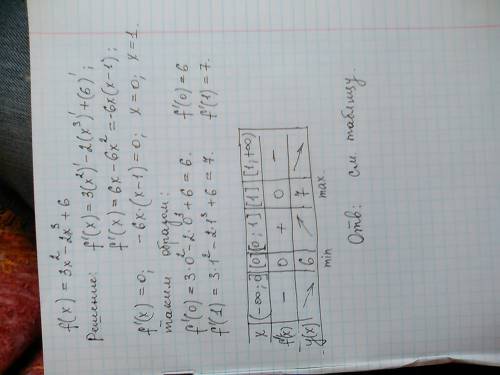 f(x) = 3x² - 2x³ + 6
Решение: f'(x) = 3(x²)' - 2(x³)' + (6)';
f'(x) = 6x - 6x² = -6x(x-1);
f'(x) = 0; -6x·(x-1) = 0; x = 0; x = 1.
таким образом:
f'(0) = 3·0² - 2·0³ + 6 = 6. f'(0) = 6
f'(1) = 3·1² - 2·1³ + 6 = 7. f'(1) = 7.
x (-∞; 0] [0] [0; 1] [1] [1, +∞)
f'(x) - 0 + 0 -
y(x) ↘ 6 ↗ 7 ↘
min max
Отв: см. таблицу.